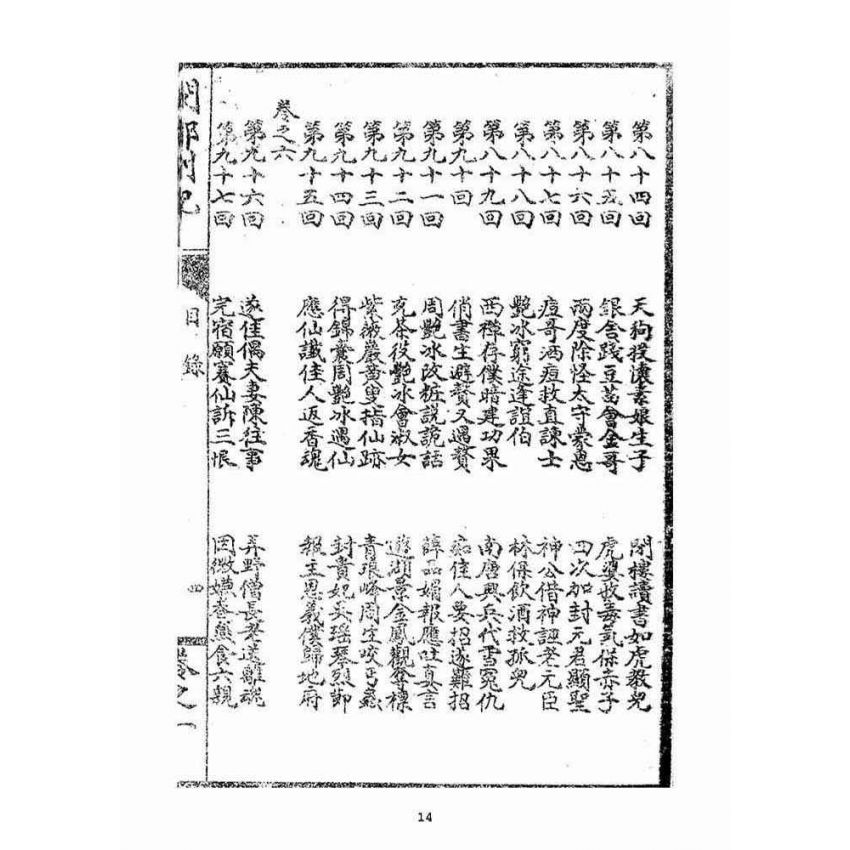 第八十四回 天狗投懷素娘生子 閉樓讀書如虎教兒
第八十五回 銀舍踐豆苗會金哥 虎婆救毒氣保赤子
第八十六回 兩度除怪太守蒙恩 四次加封元君顯聖
第八十七回 痘哥洒痘救直諫士 神公借神誣老元臣
第八十八回 艷冰窮途逢誼伯 林保飲酒救孤兒
第八十九回 西禪存僕暗建功果 南唐興兵代雪冤仇
第九十回 俏書生避贅又遇贅 痴佳人要招遂難招
第九十一回 周艷冰改粧説詭話 薛品娟報應吐真言
第九十二回 充茶役艷冰會淑女 遊湖景金鳳觀奪標
第九十三回 紫薇巖黃叟指仙跡 青琅峰周生咬丐蝨
第九十四回 得錦囊周艷冰遇仙 封貴妃吳瑶琴烈節
第九十五回 應仙讖佳人返香魂 報主恩義僕歸地府
卷之六
第九十六回 遂佳偶夫妻陳往事 弄野僧長老送離魂
第九十七回 完宿願賽仙訴三恨 因微嫌養燕食六親
閩都別記
目錄
四
卷之一
14